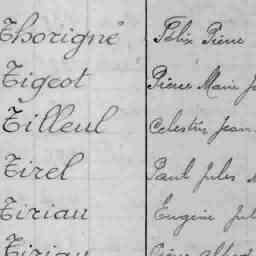 Thorigné Félix Pierre
Tigeot Pierre Marie
Tilleul Célestin Jean
Tirel Paul Jules
Tiriau Eugène
Tiriau